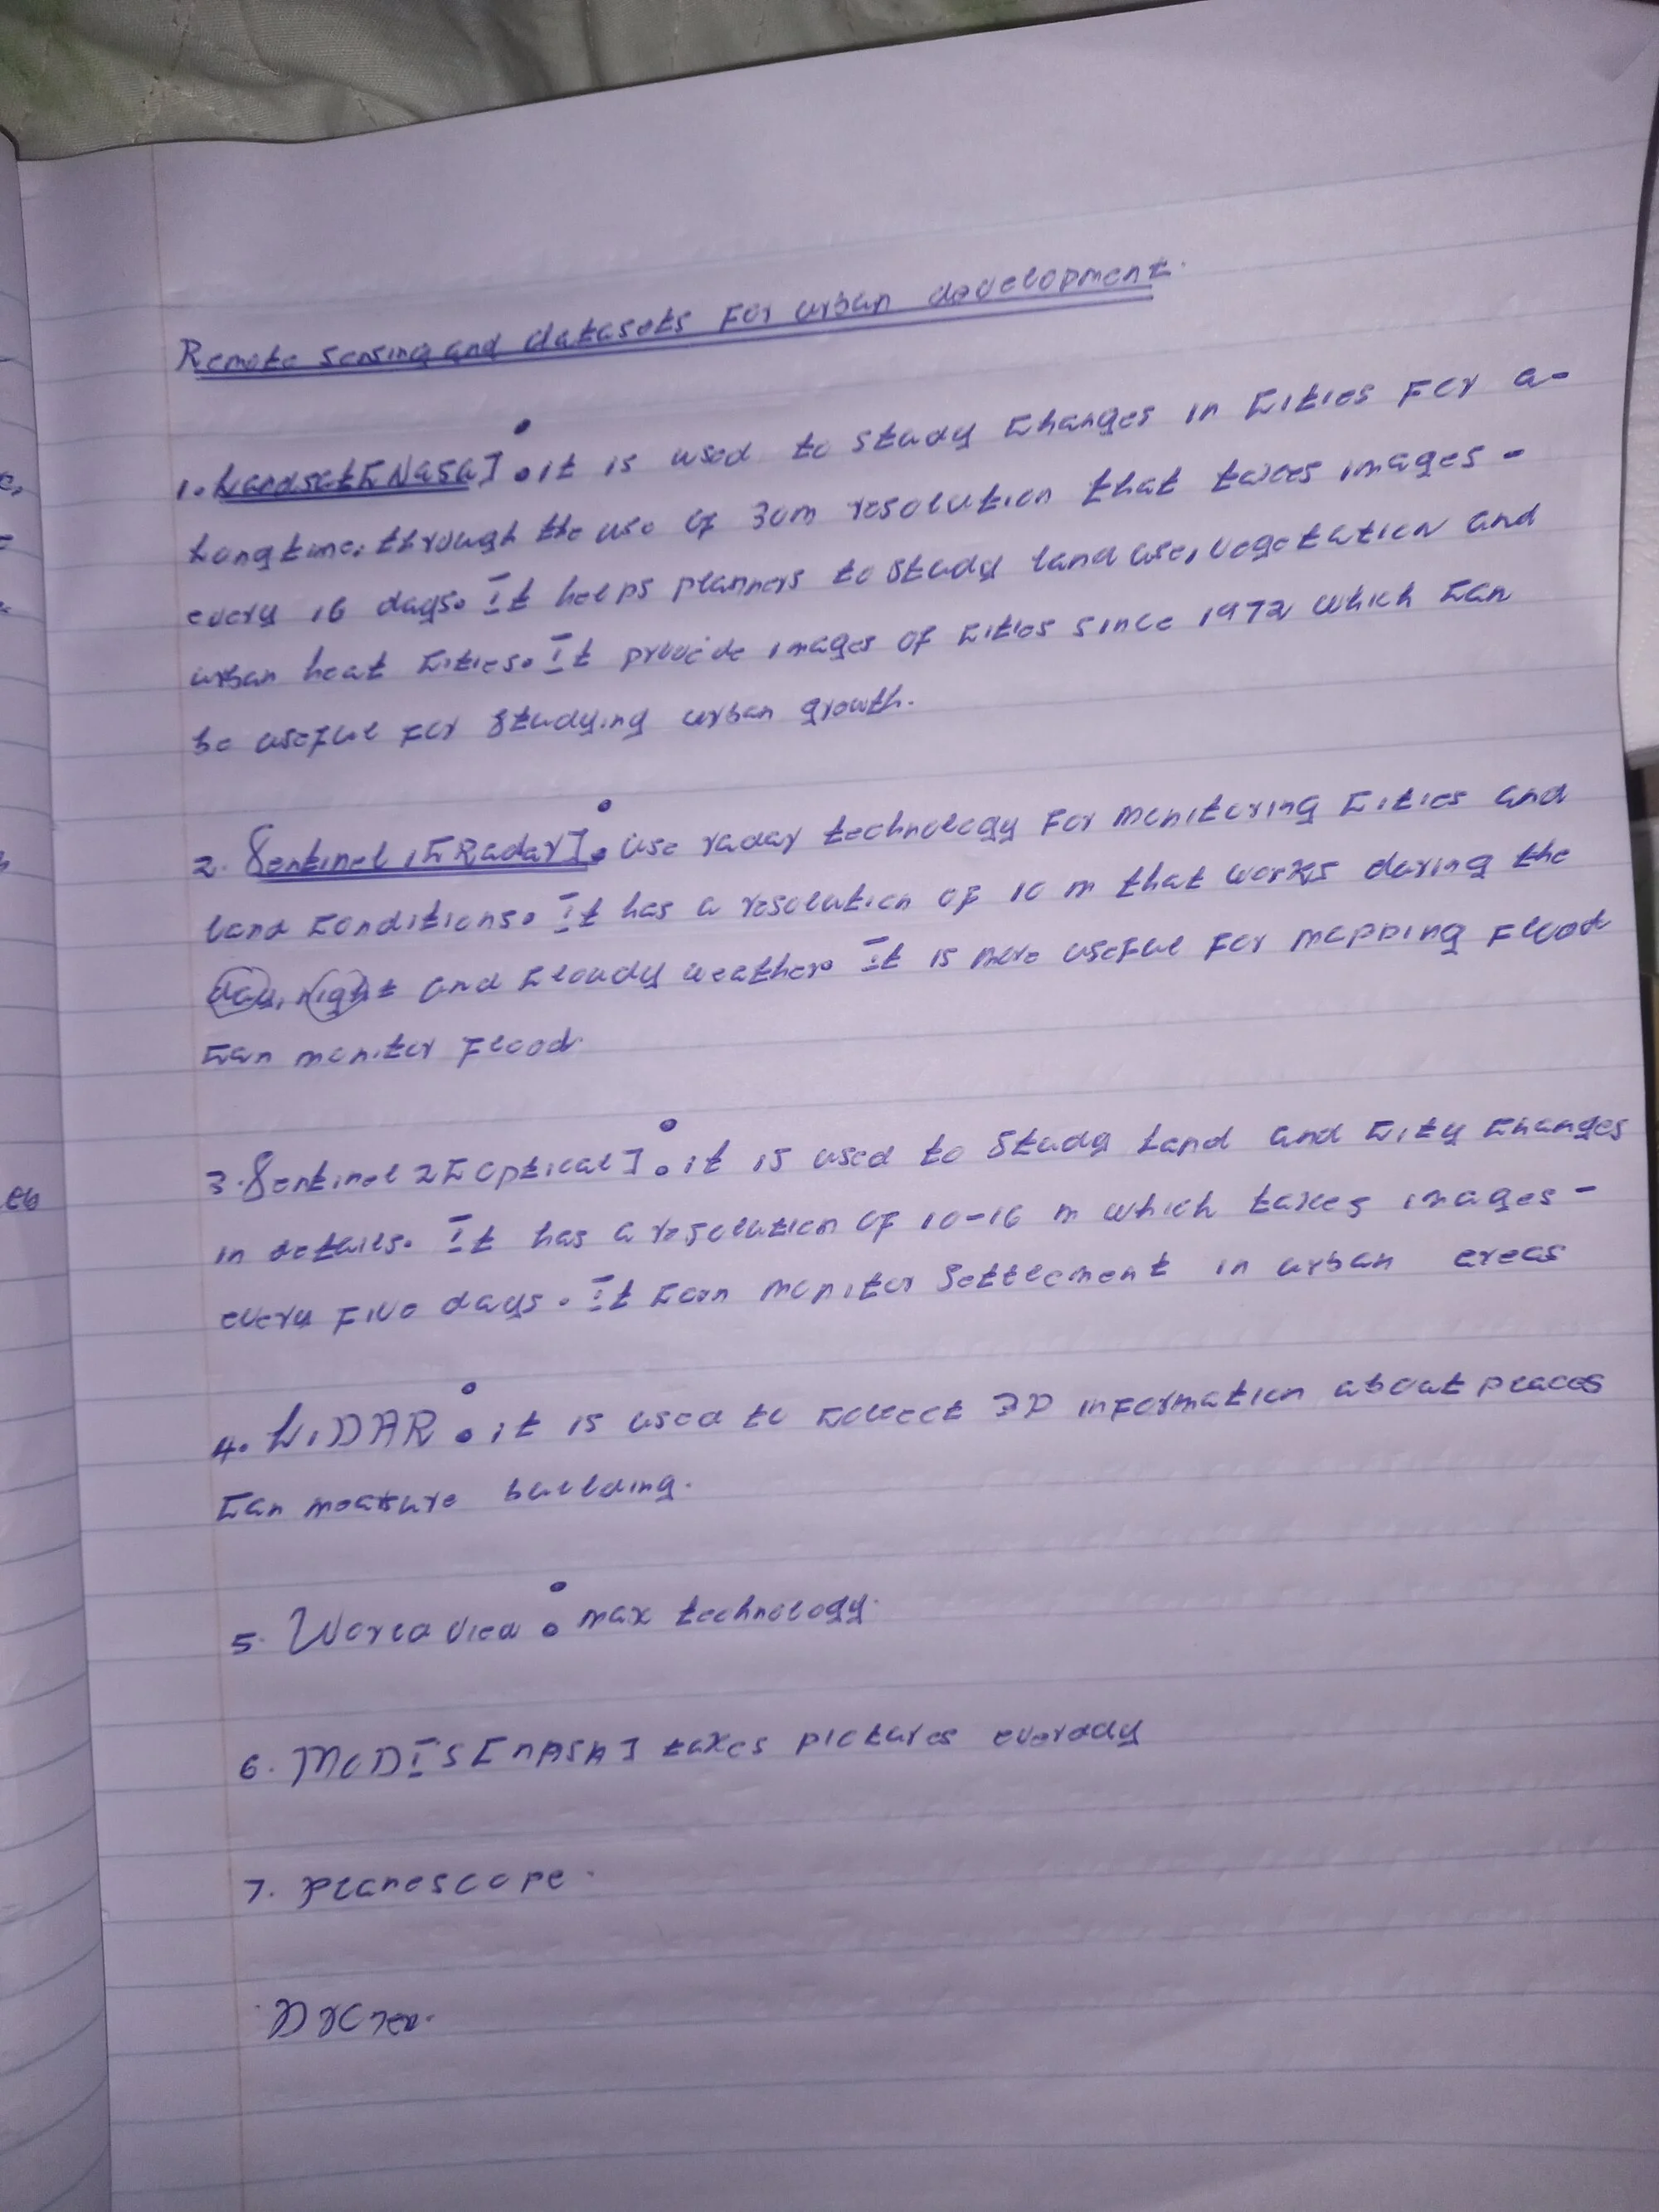 Remote sensing and datasets For urban development.
1. Landsat [Nasa]: it is used to study changes in cities For a-
long time. through the use of 30m resolution that takes images -
every 16 days. It helps planners to study land use, vegetation and
urban heat cities. It provide images of cities since 1972 which can
be useful for studying urban growth.
2. Sentinel 1 [Radar]: use radar technology For monitoring cities and
land conditions. It has a resolution of 10 m that works during the
day, night and cloudy weather. It is more useful For mapping Flood
can monitor Flood.
3. Sentinel 2 [optical]: it is used to study land and city changes
in details. It has a resolution of 10-16 m which takes images -
every Five days. It can monitor Settlement in urban areas
4. LiDAR: it is used to collect 3D inFormation about places
can measure building.
5. World View: max technology.
6. MODIS [NASA] takes pictures everyday
7. planescope.